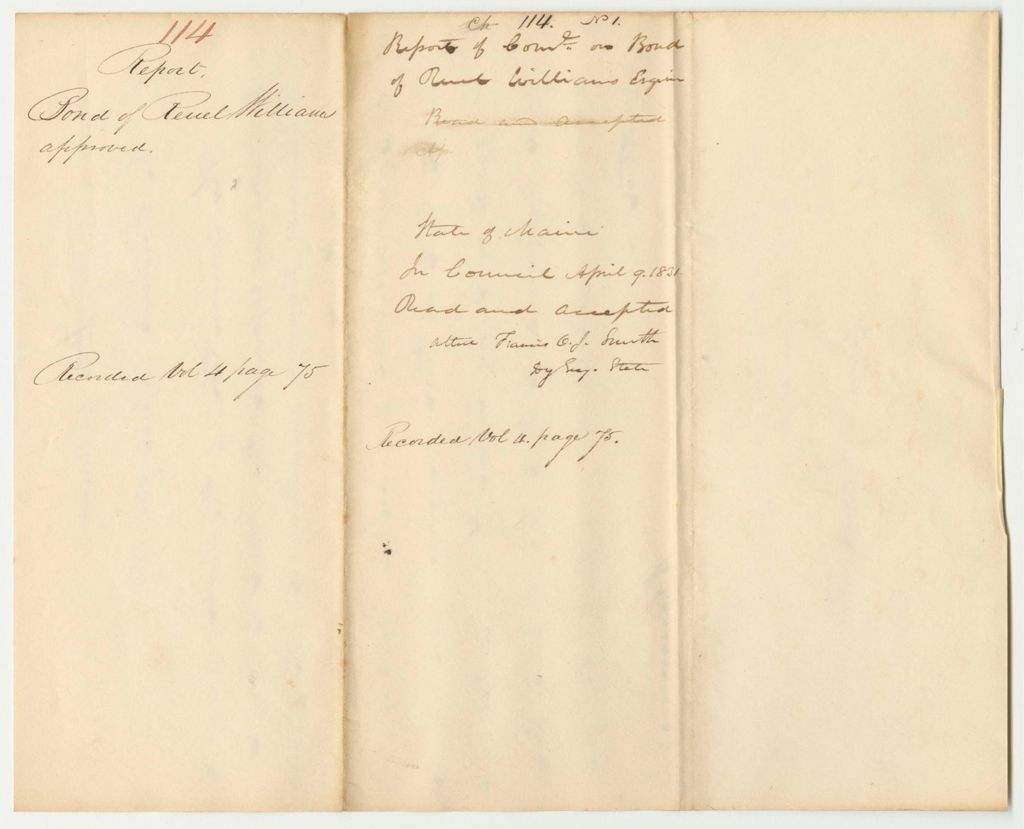 114
Report.
Bond of Reuel Williams
approved.
Recorded Vol 4 page 75
Ch 114. No 1.
Report of Comte. on Bond
of Reuel Williams Esquire
Read and accepted
State of Maine
In Council April 9. 1831
Read and accepted
attest Francis O. J. Smith
Recorded Vol 4. page 75.